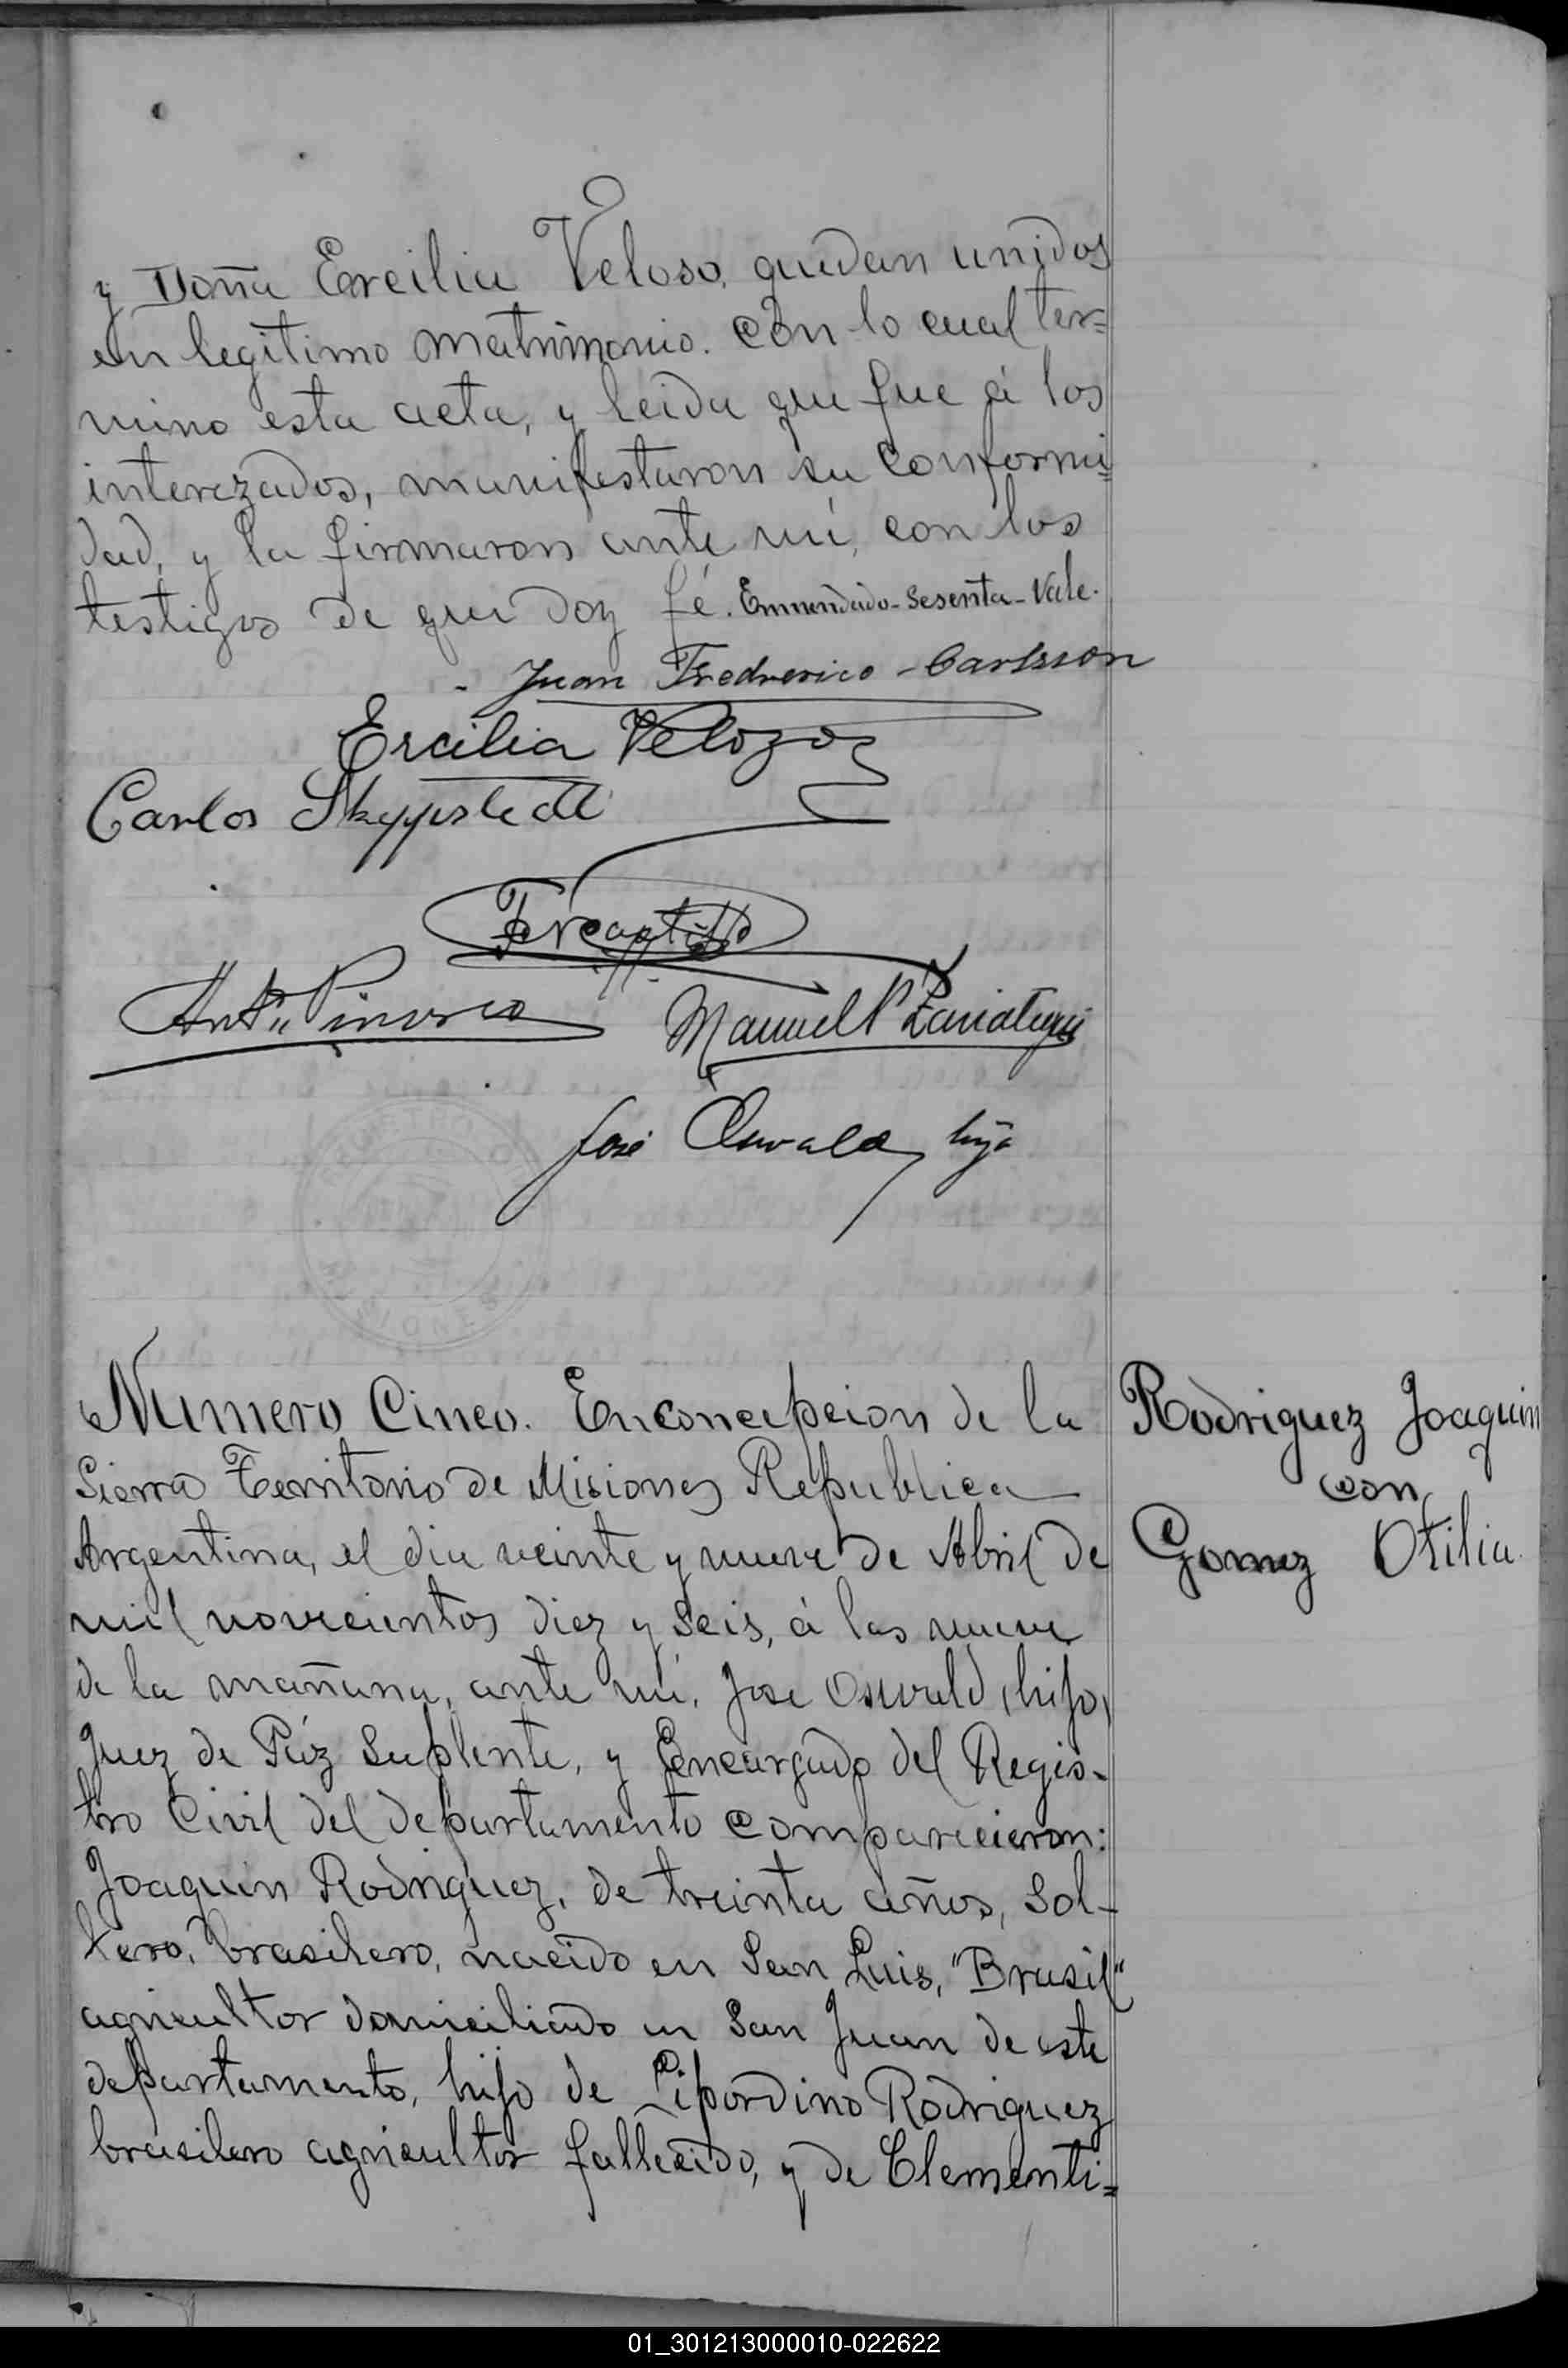 y Doña Ercilia Veloso, quedan unidos
en legitimo matrimonio. Con lo cual ter=
mino esta acta, y leida que fue á los
interezados, manifestaron su conformi=
dad, y la firmaron ante mi, con los
testigos de que doy fé. Enmendado-Sesenta-Vale.
Juan Fredrerico - Carlsson
Ercilia Velozo
Carlos Skyppstedt
José Oswald, hijo
Numero Cinco. En Concepcion de la
Sierra Territorio de Misiones Republica
Argentina, el dia veinte y nueve de Abril de
mil novecientos diez y seis, á las nueve
de la mañana, ante mi, Jose Oswald, hijo,
Juez de Páz Suplente, y Encargado del Regis-
tro Civil del departamento comparecieron:
Joaquin Rodriguez, de treinta años, Sol-
tero, brasilero, nacido en San Luis, "Brasil"
agricultor domiciliado en San Juan de este
departamento, hijo de Lipordino Rodriguez
brasilero agricultor fallecido, y de Clementi=
Rodriguez Joaquin
con
Gomez Otilia.
MISIONES
01_301213000010-022622